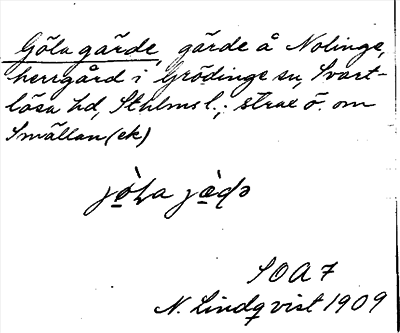 Göla gärde, gärde å Nolinge,
herrgård i Grödinge sn, Svart-
lösa hd, Sthlms l.; strax ö. om
Smällan (ek)
SOA 7
N. Lindqvist 1909